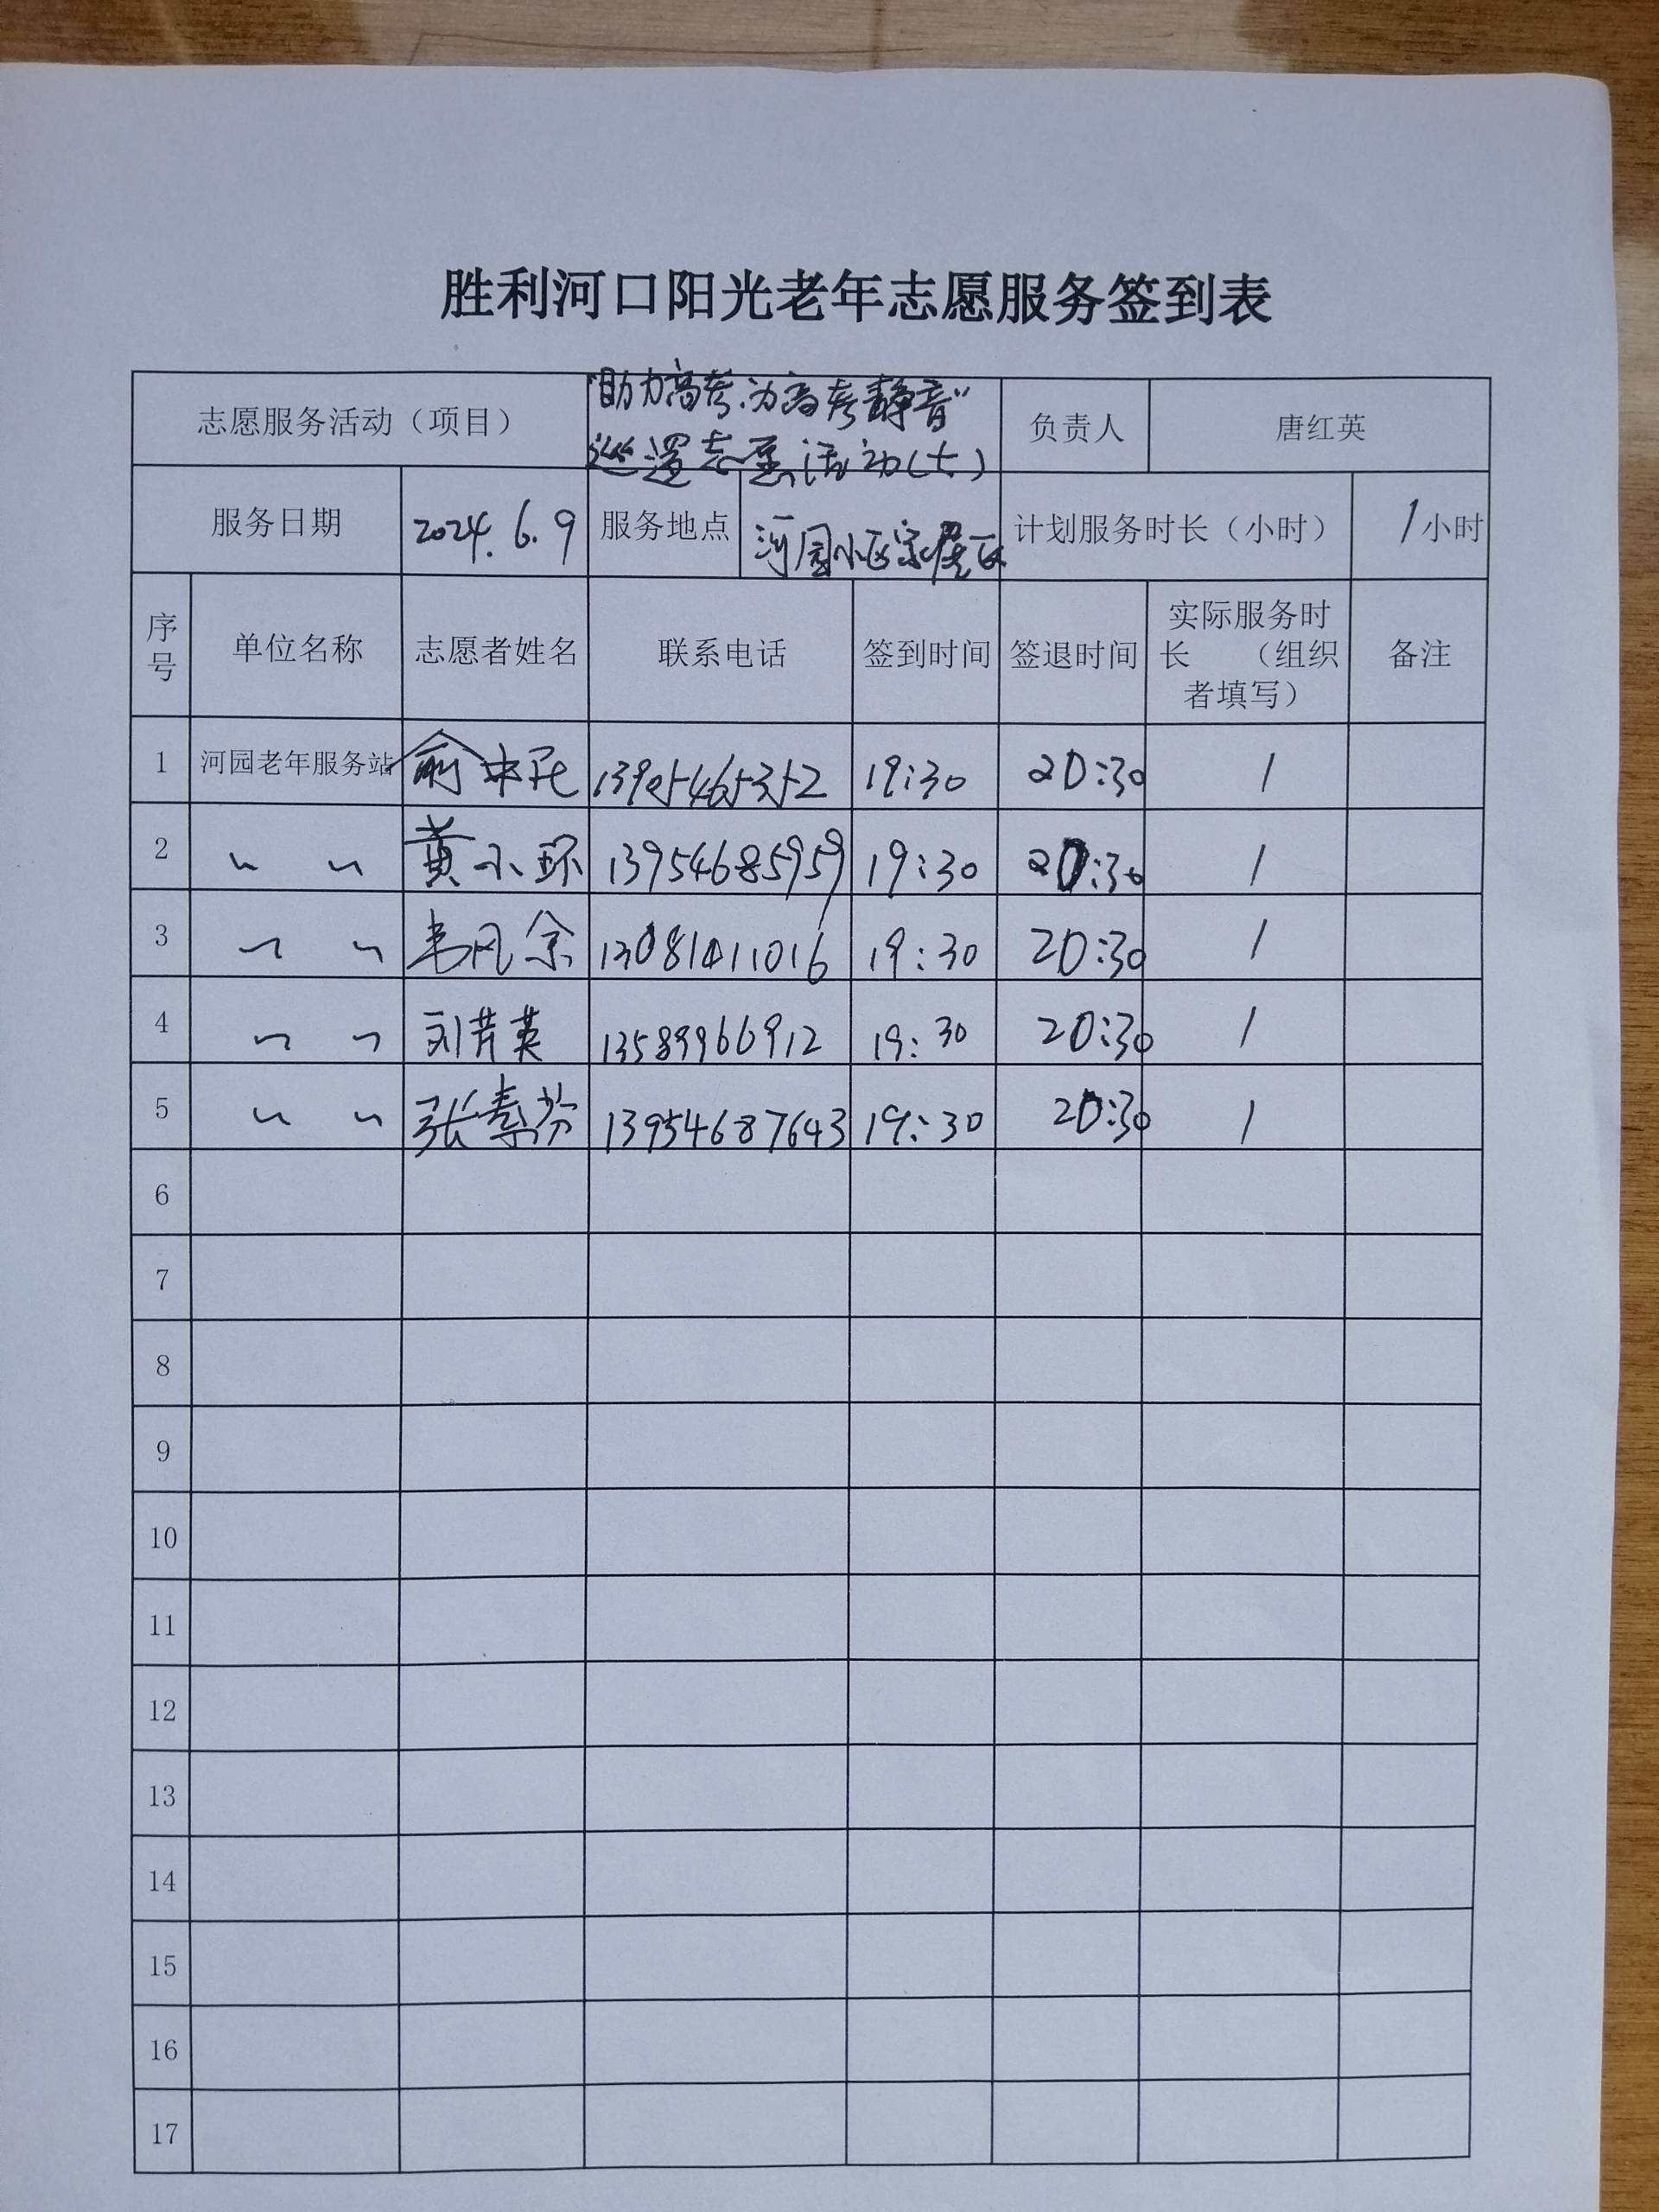 胜利河口阳光老年志愿服务签到表
志愿服务活动（项目） "助力高考.为高考静音" 负责人 唐红英
巡逻志愿活动(七)
服务日期 2024.6.9 服务地点 河园小区家属区 计划服务时长（小时） 1小时
序号 单位名称 志愿者姓名 联系电话 签到时间 签退时间 实际服务时长 （组织者填写） 备注
1 河园老年服务站 13905465352 19:30 20:30 1
2 〃 〃 黄小环 13954685959 19:30 20:30 1
3 〃 〃 13081411016 19:30 20:30 1
4 〃 〃 13589966912 19:30 20:30 1
5 〃 〃 张素芬 13954687643 19:30 20:30 1
6
7
8
9
10
11
12
13
14
15
16
17